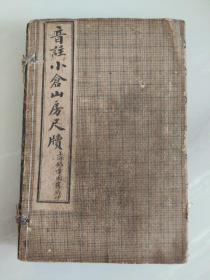 音註小倉山房尺牘